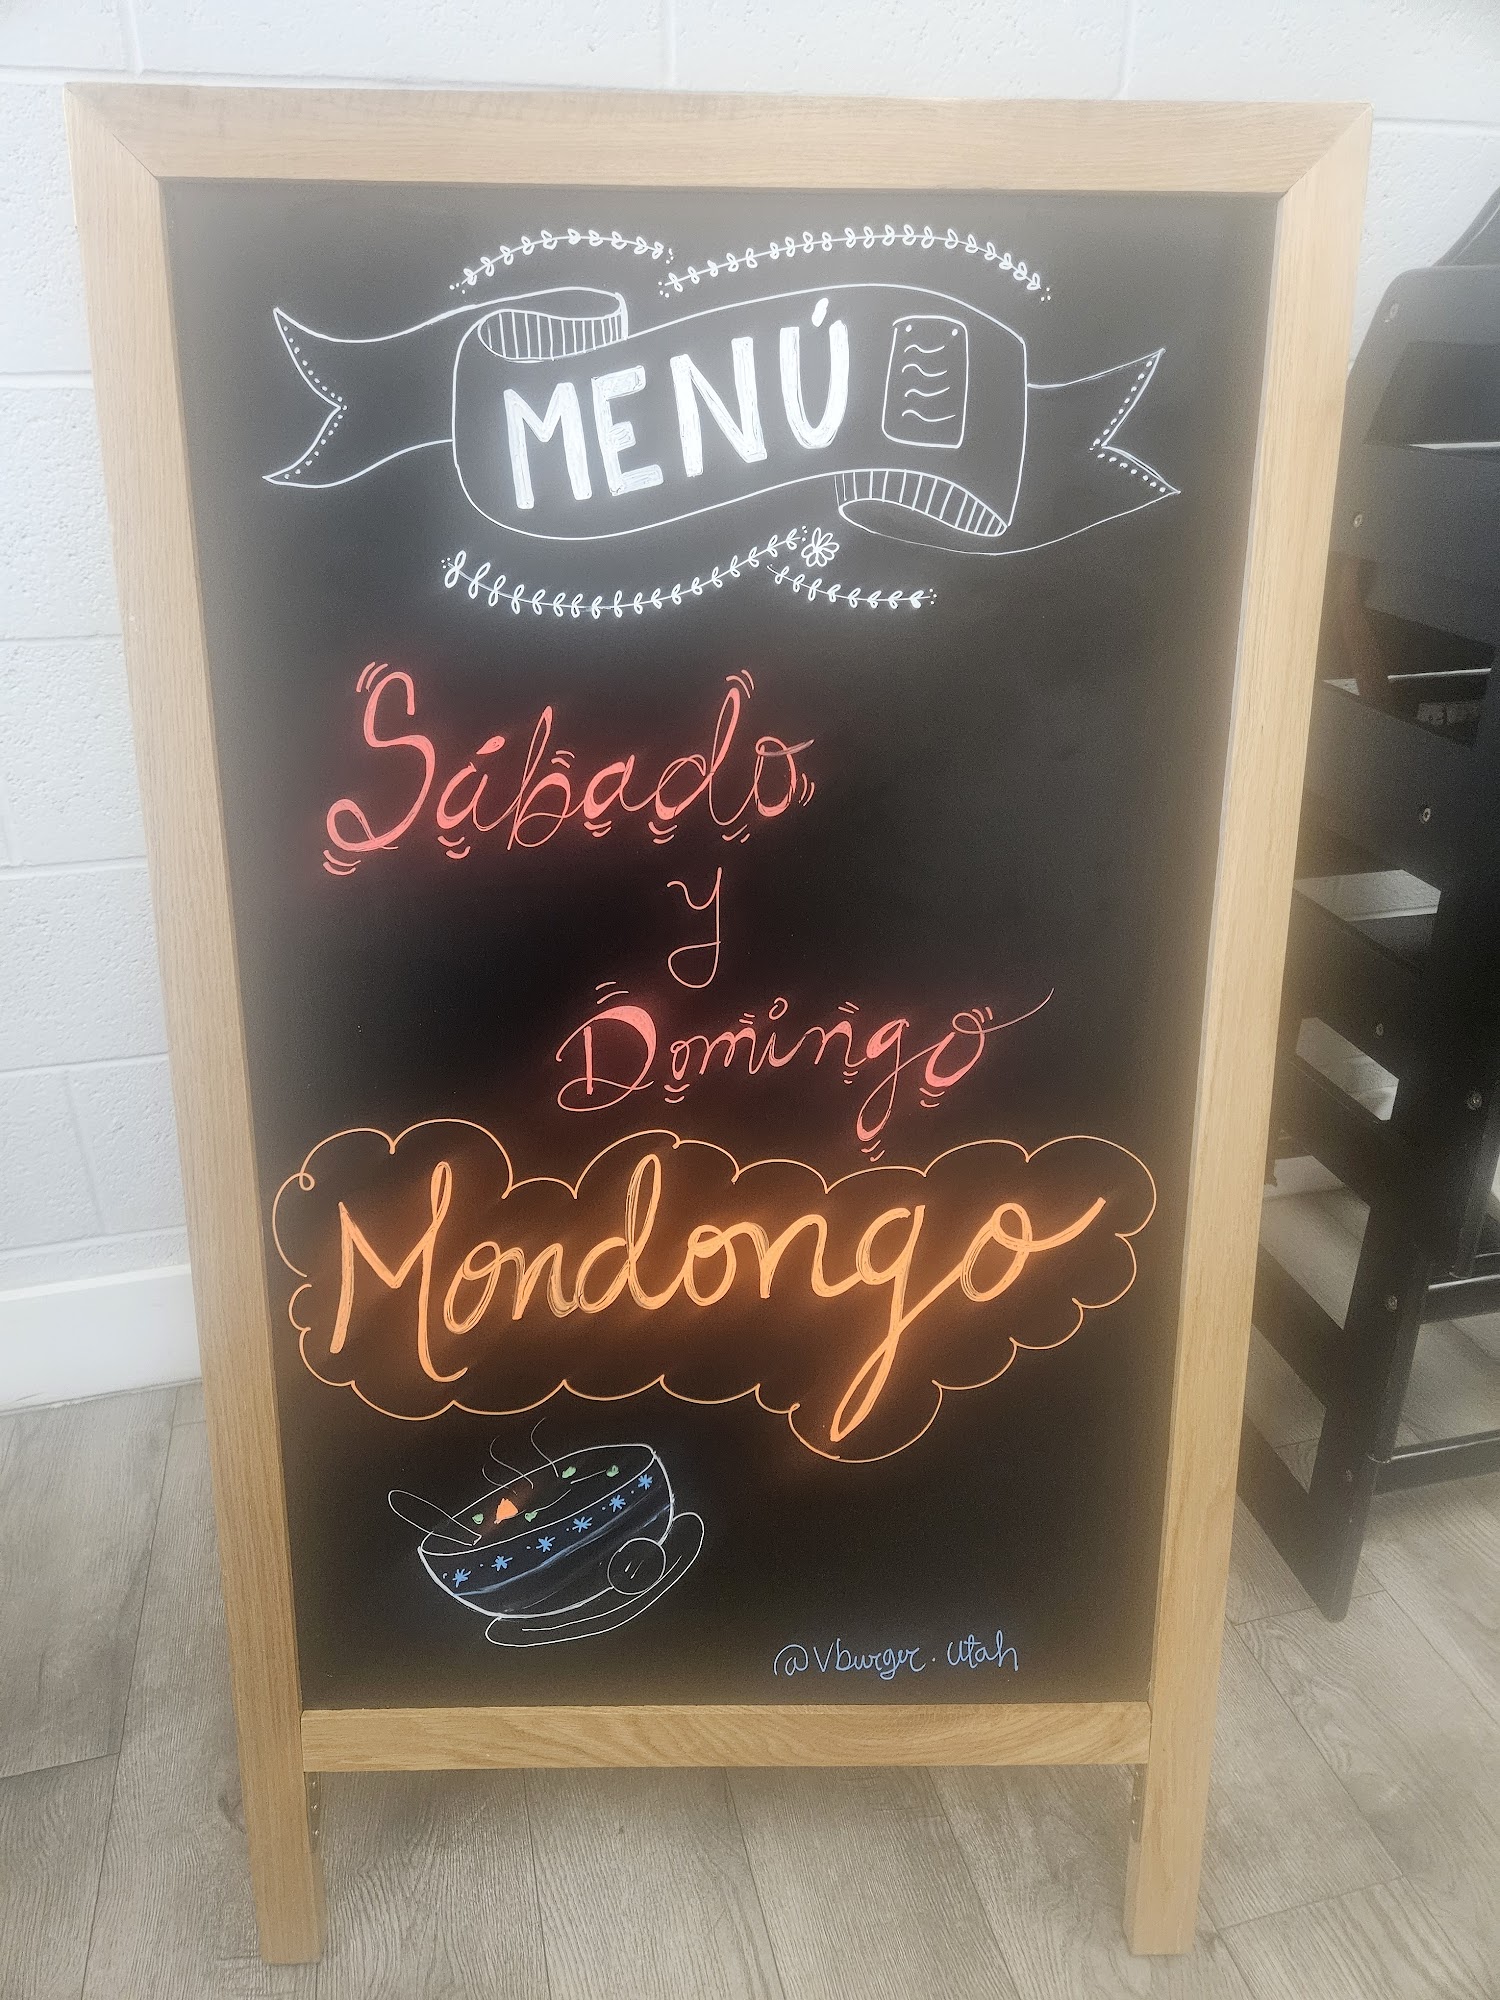 MENÚ
Sábado
y
Domingo
Mondongo
@Vburger.utah